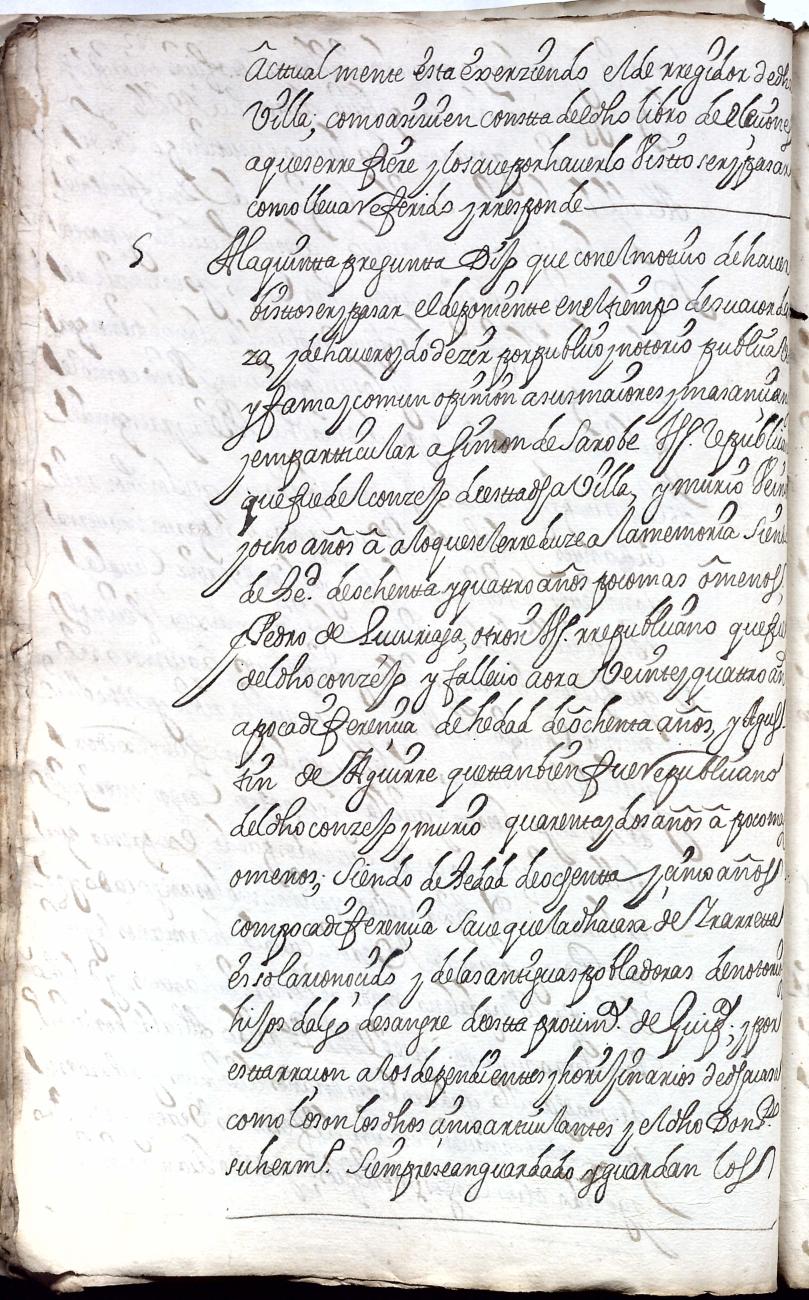 actualmente esta exerziendo el de rregidor de dha
Villa, como asi vien constta del dho libro de eleziones
aqueserrefiere y lo save por haverlo visto ser y pasar
como lleva referido y rresponde
5 A la quintta preguntta Dijo que con el motivo de haver
visto ser y pasar el deponientte en el tiempo de su acorda
za, y de haver oydo dezir por publico y notorio publica
y fama y comun opinion a sus maiores y mas anzian
y en partticular a Simon de Sarobe
que fue del conzejo destta dha Villa, y murio Veintt
y ocho años â a lo que se le rreduze a la memoria siend
de hed. de ochentta y quattro años poco mas ô menos
y Pedro de otrosi rrepublicano que fue
del dho conzejo y fallecio aora Veinte y quattro añ
a poca diferencia de hedad de ôchenta años, y Agus
tin de Aguirre que ttanbien fue republicano
del dho conzejo y murio quarenta y dos años â poco ma
omenos; siendo de hedad de ochentta y cinco años
com poca diferencia save que la dha casa de Yrarretta
es solar conocido y de las antiguas pobladoras de notorio
hijos dalgo de sangre destta provinª. de Guipª. y por
estta rracion a los dependientes y horijinarios de dha casa
como lo son los dhos cinco articulantes y el dho Don
su hermº. siempre se an guardado y guardan los